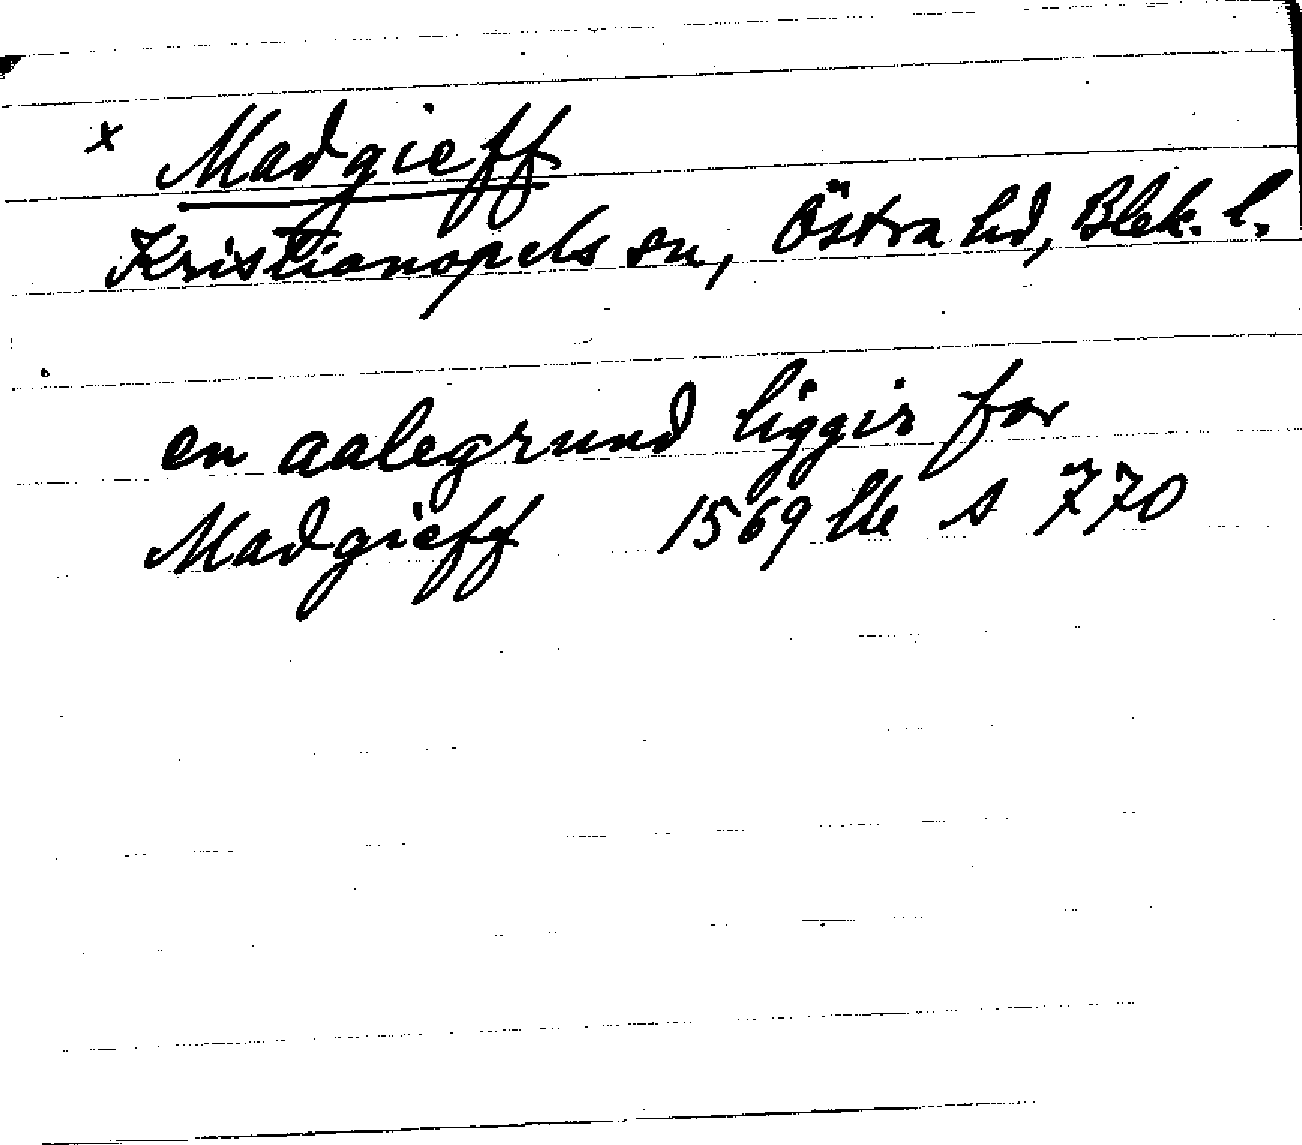 x Madgieff
Kristianopels sn, Östra hd, Blek. l.
en aalegrund liggir for
Madgieff 1569 lle s 770